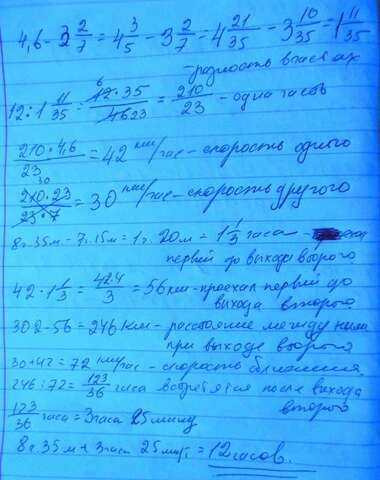 4,6 - 3 2/7 = 4 3/5 - 3 2/7 = 4 21/35 - 3 10/35 = 1 11/35
- разность в часах
12 : 1 11/35 = 12·35/46 = 210/23 - одна часов
210·4,6/23 = 42 км/час - скорость одного
210·23/23·7 = 30 км/час - скорость другого
8ч.35м - 7ч.15м = 1ч.20м = 1 1/3 часа -
первый до выхода второго
42·1 1/3 = 42·4/3 = 56 км - проехал первый до
выхода второго
302-56 = 246 км - расстояние между ними
при выходе второго
30+42 = 72 км/час - скорость сближения.
246:72 = 123/36 часа встретятся после выхода
второго
123/36 часа = 3 часа 25 мину
8ч.35м + 3 часа 25 мин = 12 часов.